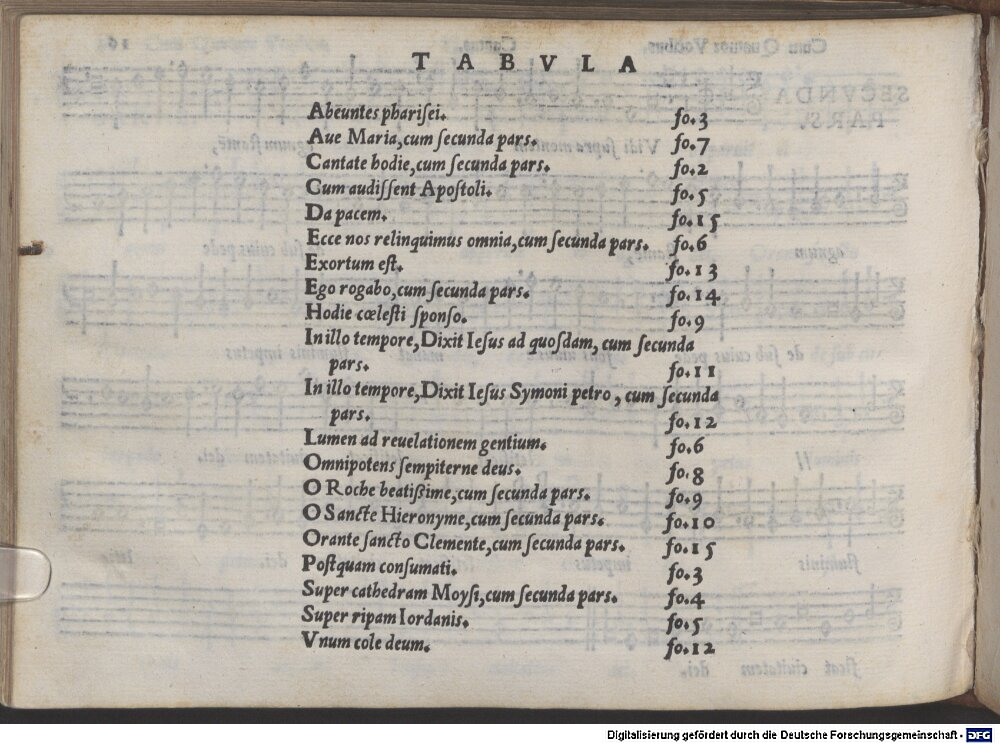 TABVLA
Abeuntes phariſei. fo.3
Aue Maria,cum ſecunda pars. fo.7
Cantate hodie,cum ſecunda pars. fo.2
Cum audiſſent Apoſtoli. fo.5
Da pacem. fo.15
Ecce nos relinquimus omnia,cum ſecunda pars. fo.6
Exortum eſt. fo.13
Ego rogabo,cum ſecunda pars. fo.14
Hodie cœleſti ſponſo. fo.9
In illo tempore,Dixit Ieſus ad quoſdam, cum ſecunda
pars. fo.11
In illo tempore,Dixit Ieſus Symoni petro, cum ſecunda
pars. fo.12
Lumen ad reuelationem gentium. fo.6
Omnipotens ſempiterne deus. fo.8
O Roche beatißime,cum ſecunda pars. fo.9
O Sancte Hieronyme,cum ſecunda pars. fo.10
Orante ſancto Clemente,cum ſecunda pars. fo.15
Poſtquam conſumati. fo.3
Super cathedram Moyſi,cum ſecunda pars. fo.4
Super ripam Iordanis. fo.5
Vnum cole deum. fo.12
Digitalisierung gefördert durch die Deutsche Forschungsgemeinschaft - DFG